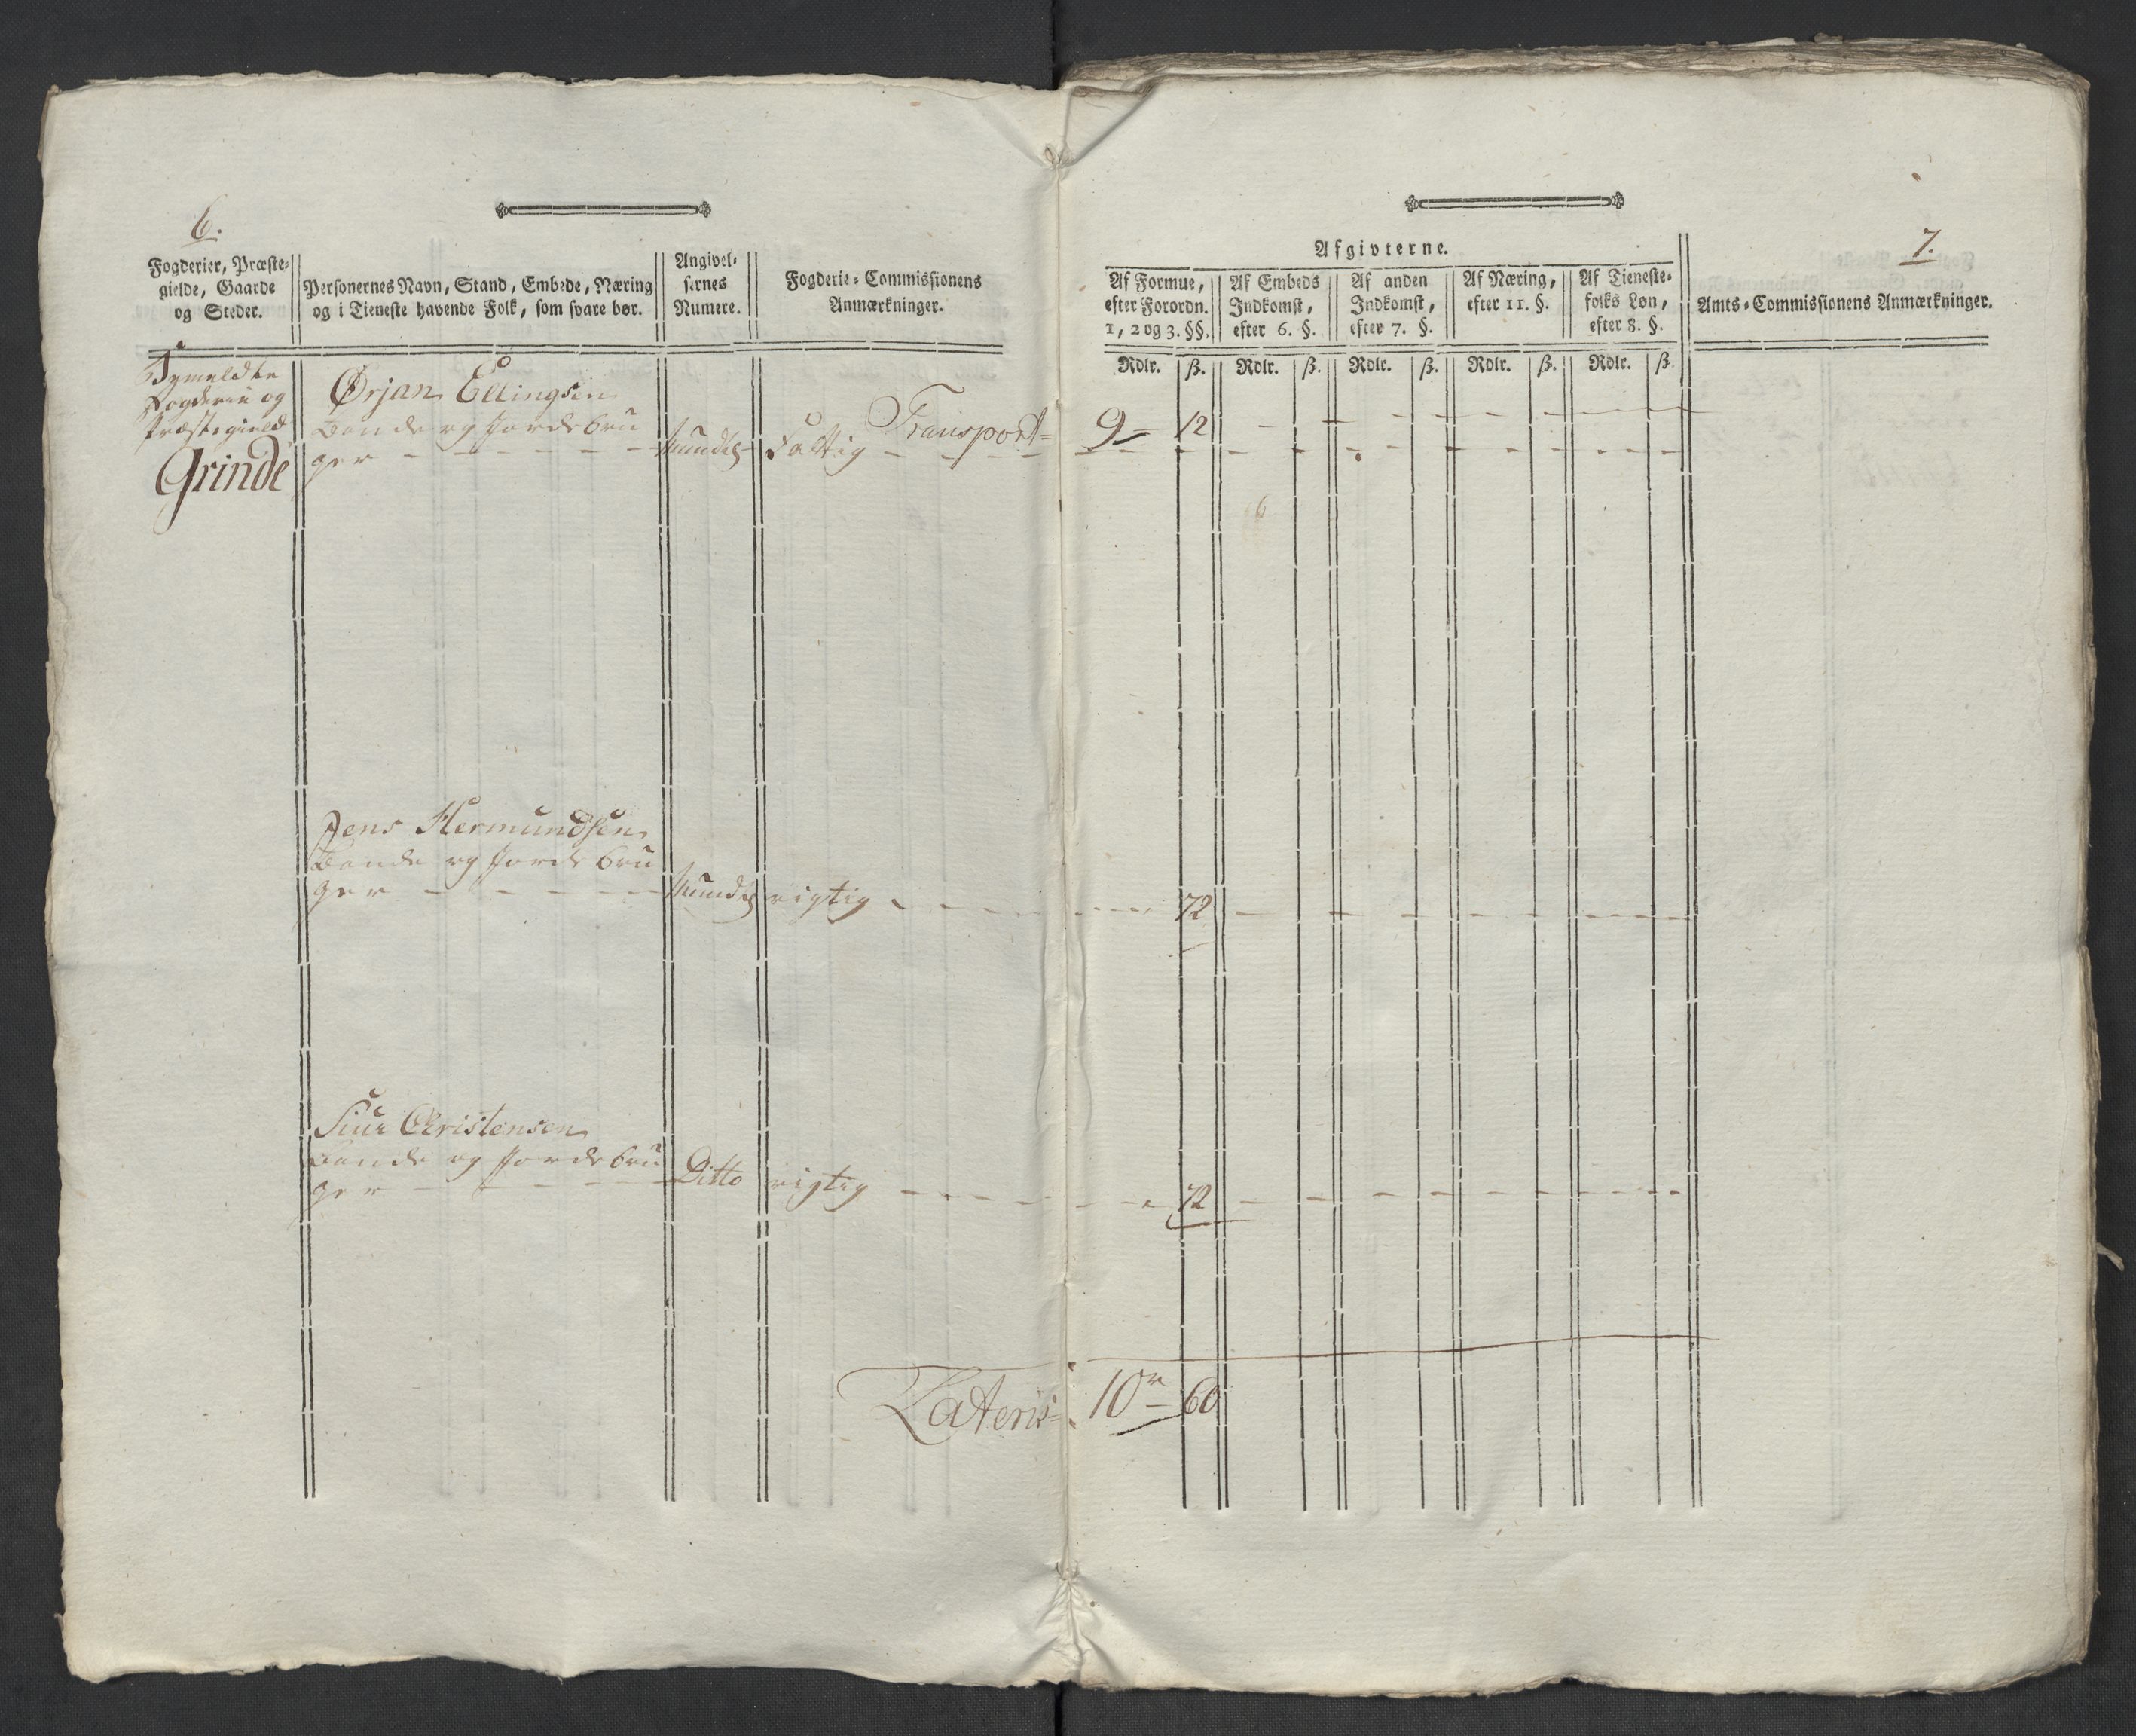 6.
Fogderier, Præste-
gielde, Gaarde
og Steder.
Personernes Navn, Stand, Embede, Næring
og i Tieneste havende Folk, som svare bør.
Angivel-
sernes
Numere.
Fogderie-Commissionens
Anmærkninger.
7.
Afgivterne.
Af Formue,
efter Forordn.
1, 2 og 3. §§.
Af Embeds
Indkomst,
efter 6. §.
Af anden
Indkomst,
efter 7. §.
Af Næring,
efter 11. §.
Af Tieneste-
folks Løn,
efter 8. §.
Amts-Commissionens Anmærkninger.
Rdlr. ß. Rdlr. ß. Rdlr. ß. Rdlr. ß. Rdlr. ß.
Fogderie og
Præstegield
Grinde
Transport 9 12
Ørjan Ellingsen
Bonde og Jordebru
ger - - - - - Mundtl. Fattig - - - -
Jens Hermundsen
Bonde og Jordebru
ger - - - - - Mundtl. rigtig - - - - 72
Siur Christensen
Bonde og Jordebru
ger - - - - - Ditto rigtig - - - - 72
Lateris 10 60